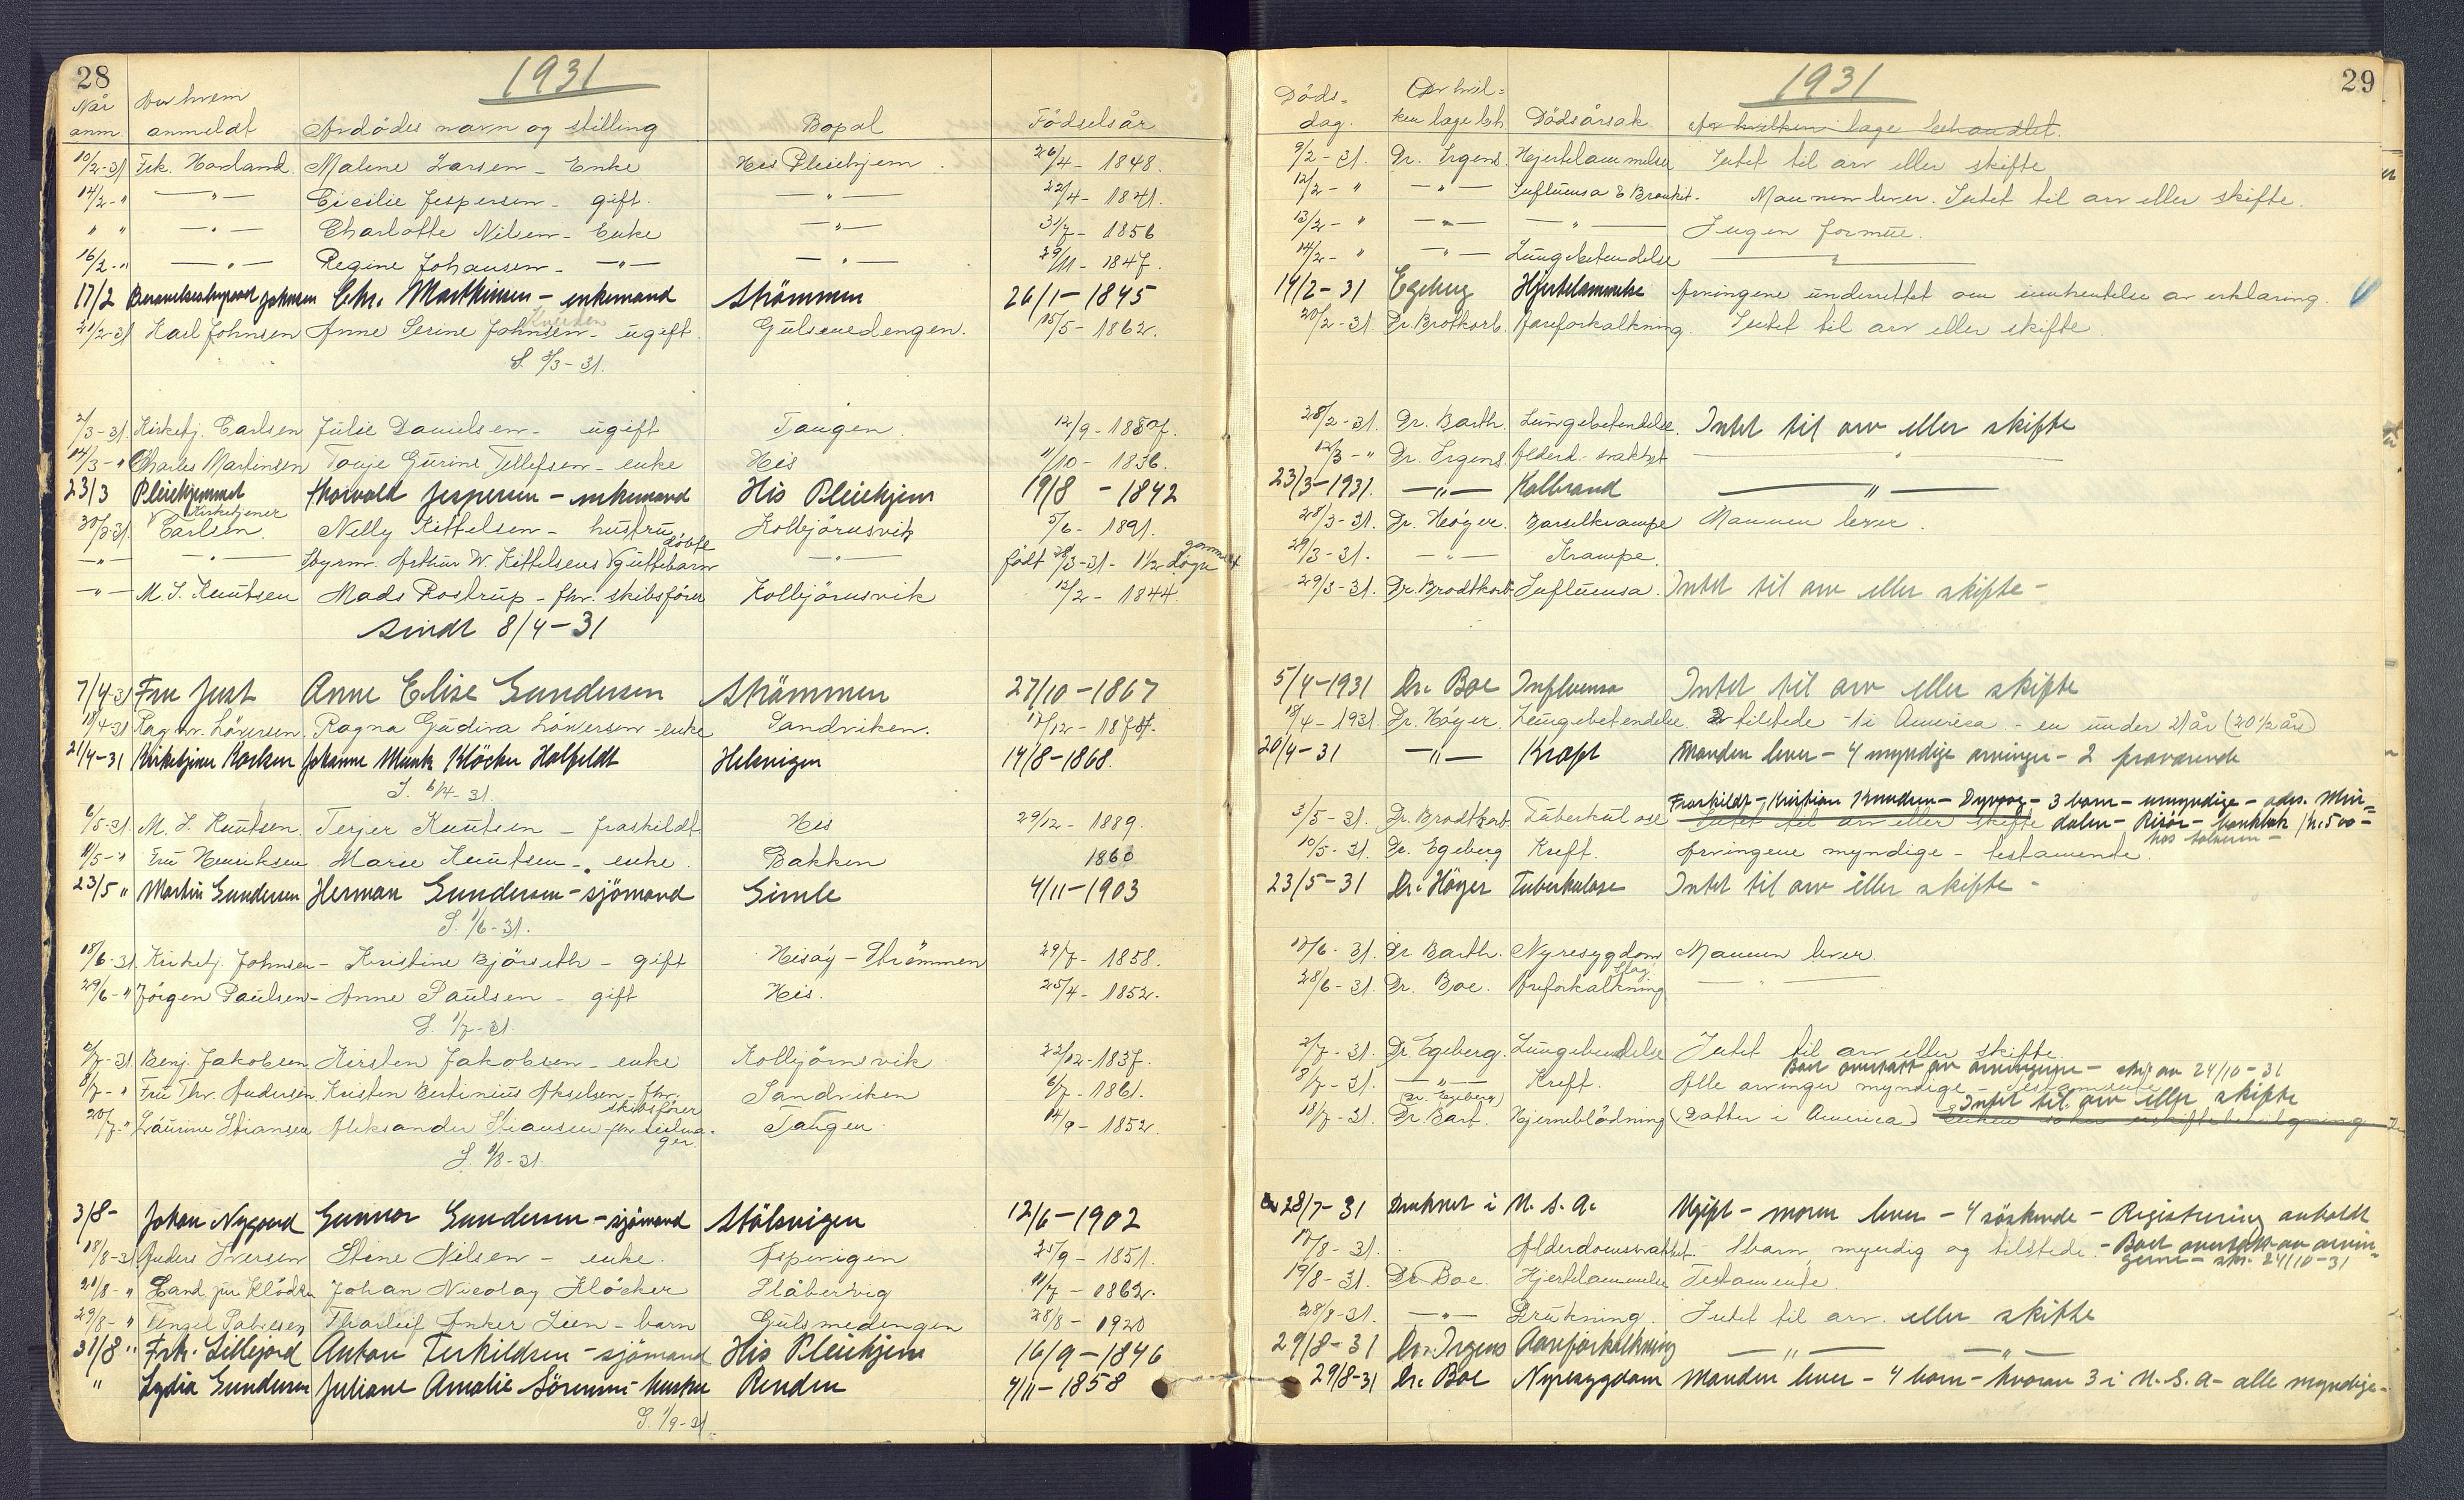 28
1931
Når anm. Av hvem anmeldt Avdødes navn og stilling Bopæl Fødselsår
10/2-31 Frk. Havland. Malene Larsen - Enke His Pleiehjem. 26/4 - 1848.
14/2-" —"— Cicilie Jespersen - gift. —"— 22/4 - 1841.
" " —"— Charlotte Nilsen - Enke —"— 31/7 - 1856
16/2-" —"— Regine Johansen - —"— —"— 29/11 - 1847.
17/2 Johnsen Chr. Marthinsen - enkemand Strømmen 26/1-1845
21/2-31 Karl Johnsen Anne Serine Johnsen - ugift Gulsmedengen. 15/5 - 1862.
S. 3/3-31.
2/3-31. Kirketj. Carlsen Julie Danielsen - ugift Tangen. 12/9 - 1857.
14/3-" Charles Martinsen Tonje Gurine Tellefsen - enke His 11/10 - 1836.
23/3 Pleiehjemmet Thorvald Jespersen - enkemand His Pleiehjem 19/8 - 1842
30/3-31. Kirketjener Carlsen. Nelly Kittelsen - hustru Kolbjørnsvik 5/6 - 1891.
—"— Styrm. Arthur W. Kittelsens døbte guttebarn —"— født 28/3-31 - 1 1/2 døgn gammelt
—"— M. S. Knutsen Mads Rostrup - fhv. skibsfører Kolbjørnsvik 12/2 - 1844.
Sendt 8/4-31
7/4-31 Fru Just Anne Elise Gundersen Strømmen 27/10-1867
18/4-31 Løversen. Ragna Gudiva Løversen - enke Sandviken. 17/12 - 1878.
21/4-31 Kirketjener Karlsen Johanne Munk Kløcker Halfeldt Helsvigen 14/8-1868.
S. 6/4-31.
6/5-31. M. S. Knutsen. Terjer Knutsen - fraskildt His 29/12 - 1889.
11/5-" Fru Henriksen Marie Knutsen - enke. Bakken 1860
23/5 " Martin Gundersen Herman Gundersen - sjømand Gimle 4/11-1903
S. 1/6-31.
18/6-31 Kirketj. Johnsen - Kristine Bjørseth - gift Hisøy - Strømmen 29/7 - 1858.
29/6-" Jørgen Paulsen - Anne Paulsen - gift His. 25/4 - 1852.
S. 1/7-31.
2/7-31. Benj. Jakobsen Kirsten Jakobsen - enke Kolbjørnsvik 22/12 - 1837.
8/7-" Fru Thr. Andersen. Kristen Bertinius Akselsen - fhv. skibsfører Sandviken 6/7 - 1861.
20/7-" Laurine Stiansen Aleksander Stiansen fhv. seilmager. Tangen 14/9 - 1852.
S. 1/8-31.
3/8- Johan Nygaard Gunnar Gundersen - sjømand Stølsvigen 12/6-1902
18/8-31 Anders Iversen Stine Nilsen - enke. Aspevigen 25/9 - 1851.
21/8-" Cand. jur Kløcker Johan Nicolay Kløcker Slåbervig 11/7 - 1862.
29/8-" Tengel Tharleif Anker Lien - barn Gulsmedengen 28/8 - 1920
31/8 " Frk. Lillejord Anton Terkildsen - sjømand His Pleiehjem 16/9-1846
" Lydia Gundersen Juliane Amalie Sørensen - hustru Renden 4/11-1858
S. 1/9-31.
29
1931
Døds-dag. Av hvilken læge beh. Dødsårsak Av hvilken læge behandlet.
9/2-31. Dr. Irgens Hjertelammelse Intet til arv eller skifte
12/2-" —"— Influensa & Bronkit. Mannen lever. Intet til arv eller skifte.
13/2-" —"— —"— Ingen formue.
14/2-" —"— Lungebetendelse —"—
14/2-31 Egeberg Hjertelammelse Arvingene underrettet om innhentelse av erklæring.
20/2-31. Dr. Brotkorb. Åreforkalkning. Intet til arv eller skifte.
28/2-31. Dr. Barth. Lungebetendelse. Intet til arv eller skifte
12/3-" Dr. Irgens. Alderd. svakhet —"—
23/3-1931. —"— Kolbrand —"—
28/3-31. Dr. Høyer. Barselkrampe Mannen lever.
29/3-31. —"— Krampe.
29/3-31. Dr. Brodtkorb Influensa. Intet til arv eller skifte -
5/4-1931 Dr. Boe Influensa Intet til arv eller skifte
18/4-1931. Dr. Høyer. Lungebetendelse 2 tilstede - 1 i America - en under 21 år (20 1/2 år)
20/4-31 —"— Kræft Manden lever - 4 myndige arvinger - 2 fraværende
Fraskildt - Kristian Knudsen - Dyvaag - 3 barn - umyndige - adv. Min-
3/5-31. Dr. Brodtkorb Tuberkulose Intet til arv eller skifte dalen - Risør - bankbok kr. 500 -
10/5-31. Dr. Egeberg Kreft. Arvingene myndige - testamente.
23/5-31 Dr. Høyer Tuberkulose Intet til arv eller skifte -
17/6-31. Dr Barth. Nyresygdom Mannen lever.
28/6-31. Dr. Boe. Åreforkalkning Slag. —"—
2/7-31. Dr. Egeberg. Lungebetendelse Intet til arv eller skifte.
Boet overtatt av arvingerne - skj. av 24/10-31
8/7-31. —"— Kreft. Alle arvinger myndige - Testamente
(Dr. Egeberg) Intet til arv eller skifte
18/7-31. Dr. Bart. Hjerneblødning (Datter i America) Enken søker uskiftebevilgning
28/7-31 Druknet i U.S.A. Ugift - moren lever - 4 søskende - Registrering anholdt
17/8-31. Alderdomssvakhet. 1 barn, myndig og tilstede. - Boet overtatt av arvin-
gerne - skj. 24/10-31
19/8-31. Dr. Boe. Hjertelammelse Testamente.
28/8-31. —"— Drukning. Intet til arv eller skifte
29/8-31 Dr. Irgens Aareforkalkning —"— —"—
29/8-31 Dr. Boe Nyresygdom Manden lever - 4 barn - hvorav 3 i U.S.A - alle myndige -